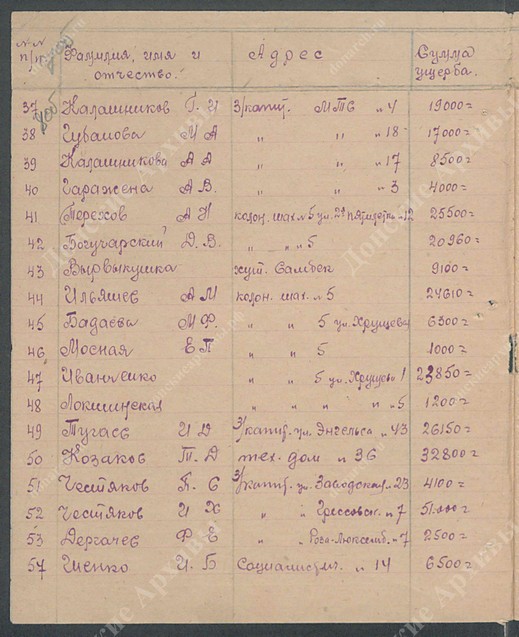 №№ п/п Фамилия, имя и отчество. Адрес Сумма ущерба.
37 Калашников Г. И З/капит. МТС „ 4 19000=
38 М А „ „ 18 17000=
39 Калашникова А А „ „ 17 8500=
40 А В. „ „ 3 4000=
41 Терехов А Н колон. шах. № 5 ул. 2й пятилетки „ 12 25500=
42 Богучарский Д. В. „ „ „ 5 20960=
43 Вырвыкушка хут. Самбек 9100=
44 Ильяшев А М колон. шах. „ 5 24610=
45 Бадаева М Ф. „ „ 5 ул. Хрущева 6300=
46 Мосная Е П „ „ 5 1000=
47 Иванченко „ „ 5 ул. Хрущева 1 23850=
48 Локшинская „ „ „ „ „ 5 1200=
49 Тугаев И Д З/капит. ул. Энгельса „ 43 26150=
50 Козаков Т. Д тех. дом „ 36 32800=
51 Честяков П. С З/капит. ул. Заводская „ 23 4100=
52 Честяков И Х „ „ Грессовск. „ 7
53 Дергачев Ф Е „ „ Роза-Люксемб. „ 7 2500=
54 И. Б Социалистич. „ 14 6500=